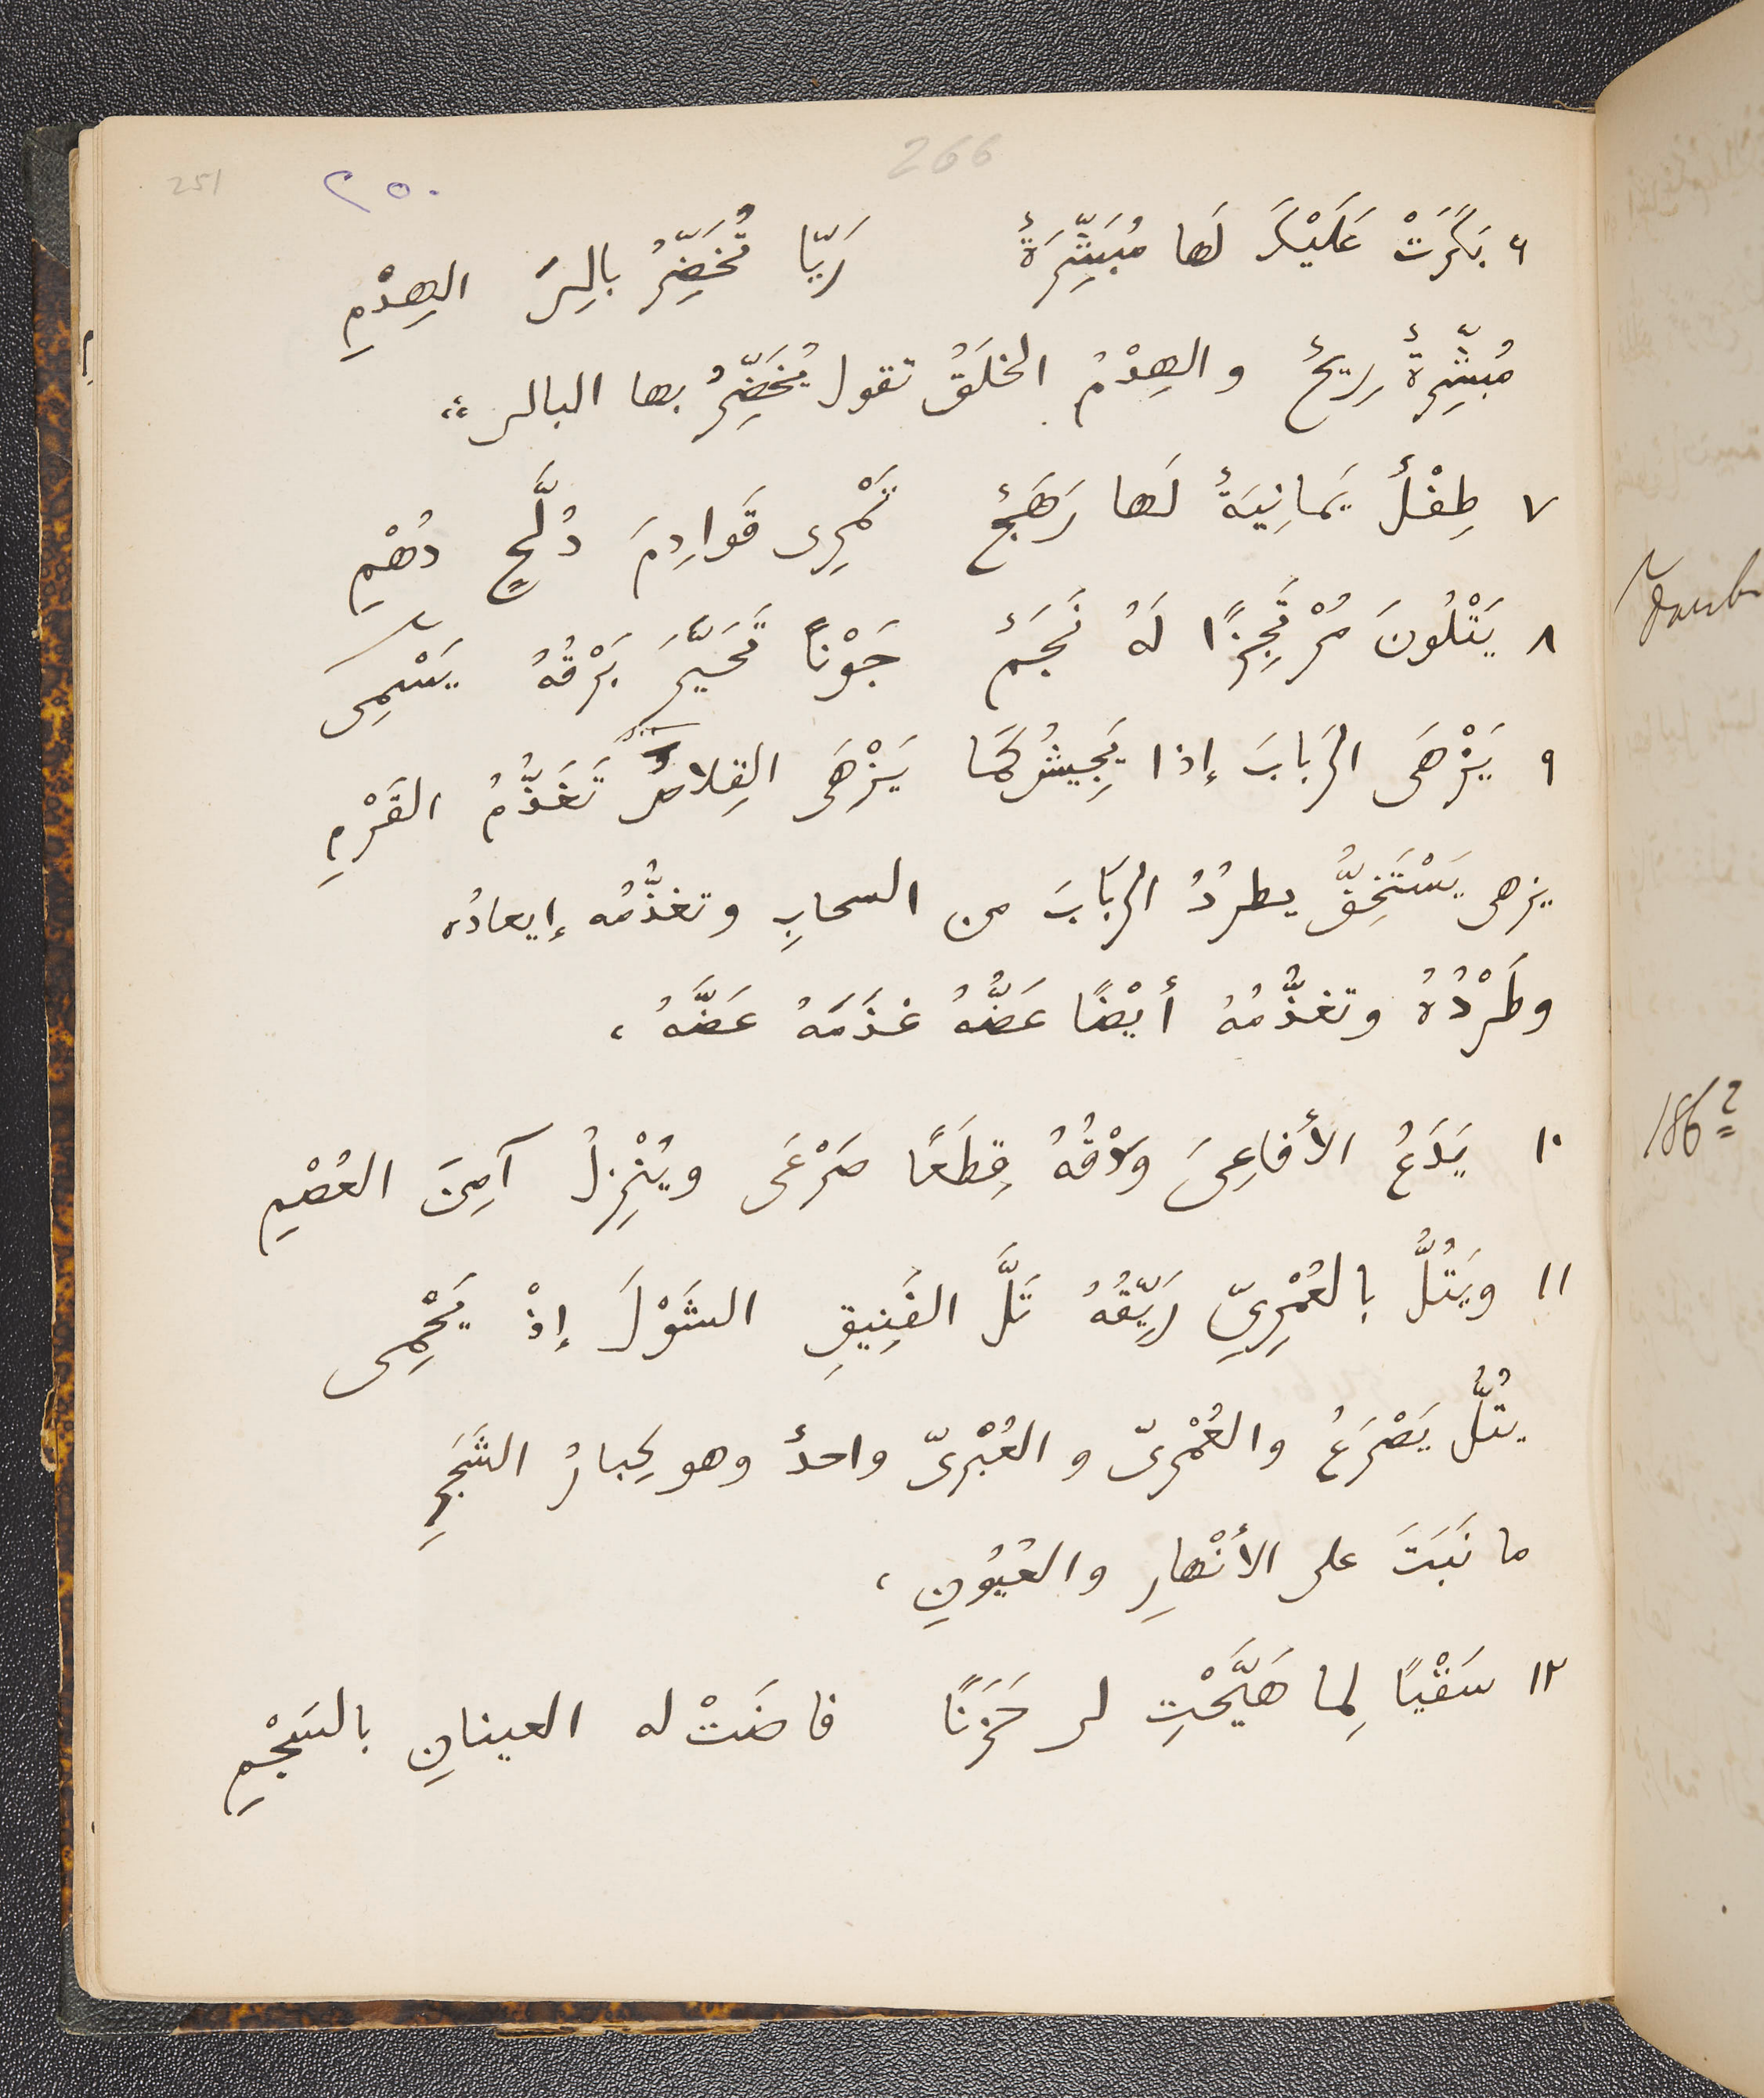 266
251
٢٥٠
٦ بَكَرَتْ عَلَيْكَ لَها مُبَشِّرَةٌ رَيّا تُخَضِّرُ بالِىَ الهِدْمِ
مُبشِّرةٌ رِيحٌ والهِدْمُ الخلَقُ تقول يُخَضِّرُ بها البالى ،،
٧ طِفْلٌ يَمانِيَةٌ لَها رَهَجٌ تَمْرِى قَوادِمَ دُلَّحٍ دُهْمِ
٨ يَتْلُونَ مُرْتَجِزًا لَهُ نَجَمٌ جَوْنًا تَحَيَّرَ بَرْقُهُ يَسْمِى
٩ يَزْهَى الرَبابَ إذا يَجِيشُ كَمَا يَزْهَى القِلاصَ تَغَذُّمُ القَرْمِ
يزهى يَسْتَخِفُّ يطرُدُ الرَبابَ من السحابِ وتغذُّمُه إيعادُه
وطَرْدُهُ وتغذُّمُهُ أيْضًا عَضُّهُ غذَمَهُ عَضَّهُ ،
١٠ يَدَعُ الأفاعِىَ وَدْقُهُ قِطَعًا صَرْعَى ويُنْزِلُ آمِنَ العُصْمِ
١١ ويَتُلُّ بالعُمْرِىِّ رَيِّقُهُ تَلَّ الفَنِيقِ الشَوْلَ إذْ يَحْمِى
يتُلُّ يَصْرَعُ والعُمْرىّ والعُبْرىّ واحدٌ وهو كِبارُ الشَجَرِ
ما نَبَتَ على الأنْهارِ والعُيُونِ ،
١٢ سَقْيًا لِما هَيَّجْتِ لى حَزَنًا فاضَتْ له العينانِ بالسَجْمِ